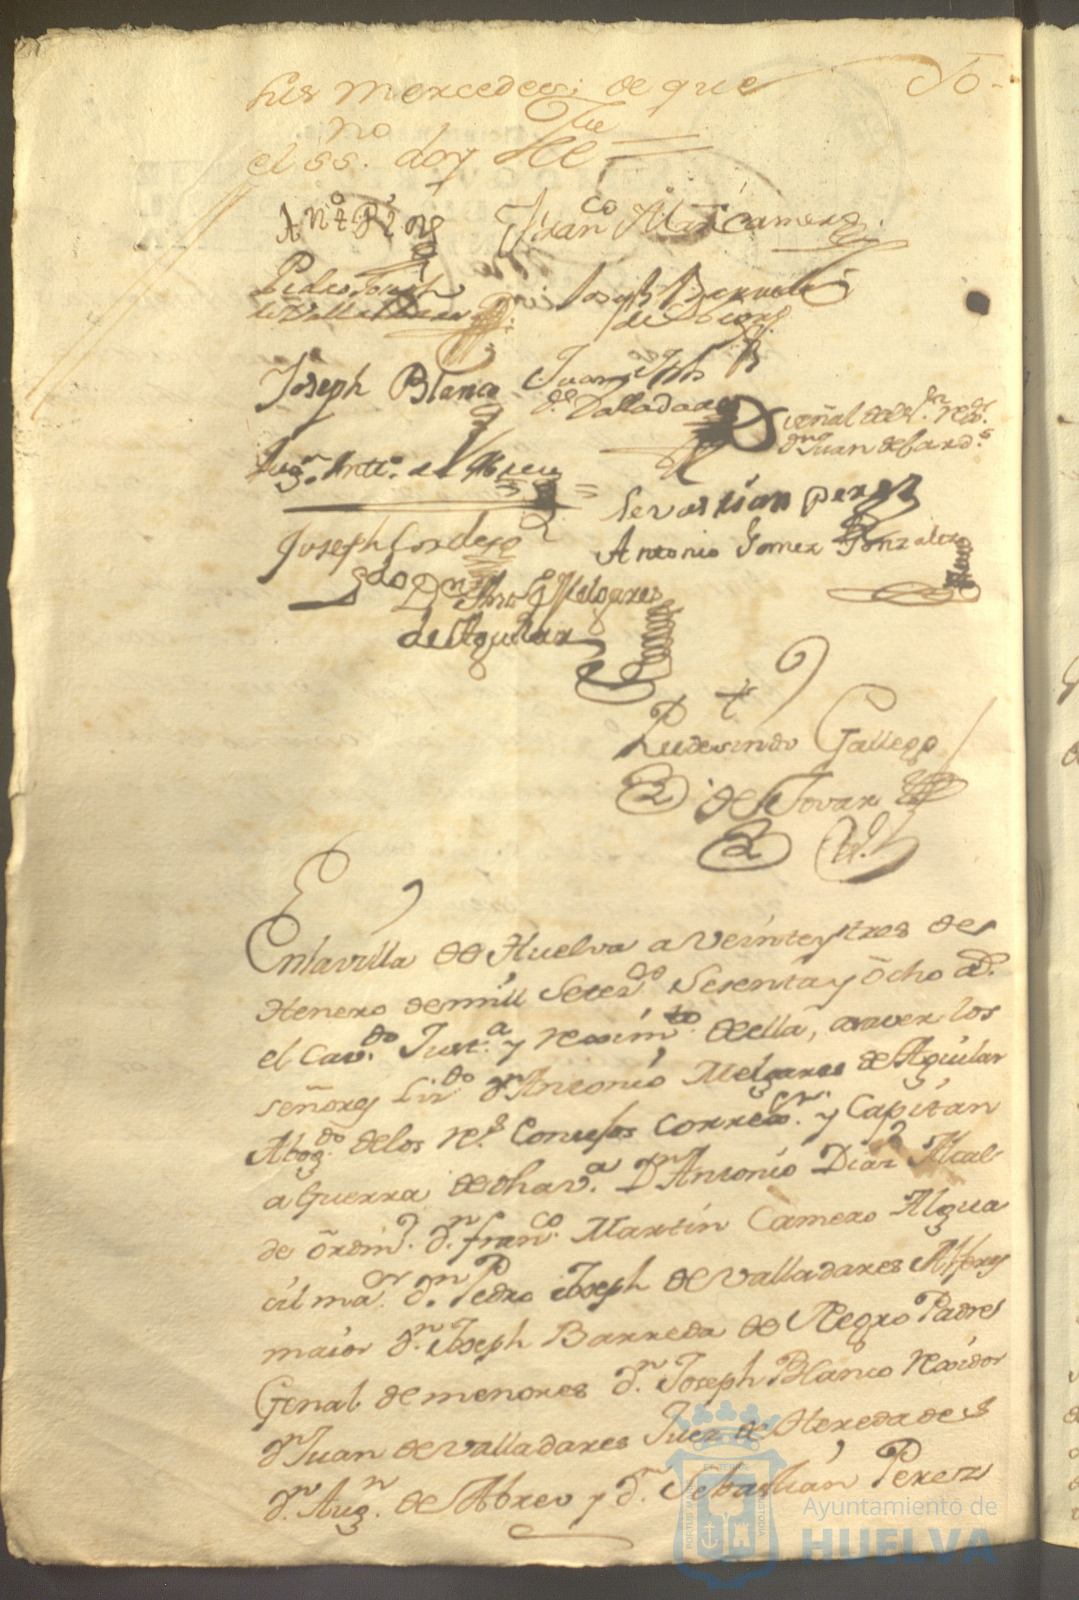 sus mercedes; de que Yo
el ss.no doy Fee
Anto Diaz
Franco Mar Camero
Pedro Joseph
de Valladares
Joseph Barreda
de Negro
Joseph Blanco
Juan Jph
de Valladares
señal del Sr. rexor
dn Juan de
Augn Antto. de Abreu
Sevastian perez
Joseph Cordero
Antonio Gomez Gonzalez
Ldo Dn Antto Melgares
de Aguilar
Rudesindo Gallego
de Tovar
En la villa de Huelva a veinte y tres de
Henero de mill Setezdo. Sesenta y ocho ad.
el Cavdo. Justa. y reximto. de ella, a saver los
señores Lizdo. dn Antonio Melgares de Aguilar
Abogdo de los rs. Consejos Corregor. y Capitan
a Guerra de dha va. Dn Antonio Diaz Alcal
de ordino. dn. Franco. Martin Camero Algua
cil mar. dn. Pedro Joseph de Valladares Alferez
maior dn. Joseph Barreda de Negro Padre
Genal. de menores dn. Joseph Blanco rexidor
dn Juan de Valladares Juez de Heredades
dn. Augn. de Abreo y dn. Sebastián Perez
Ayuntamiento de
HUELVA